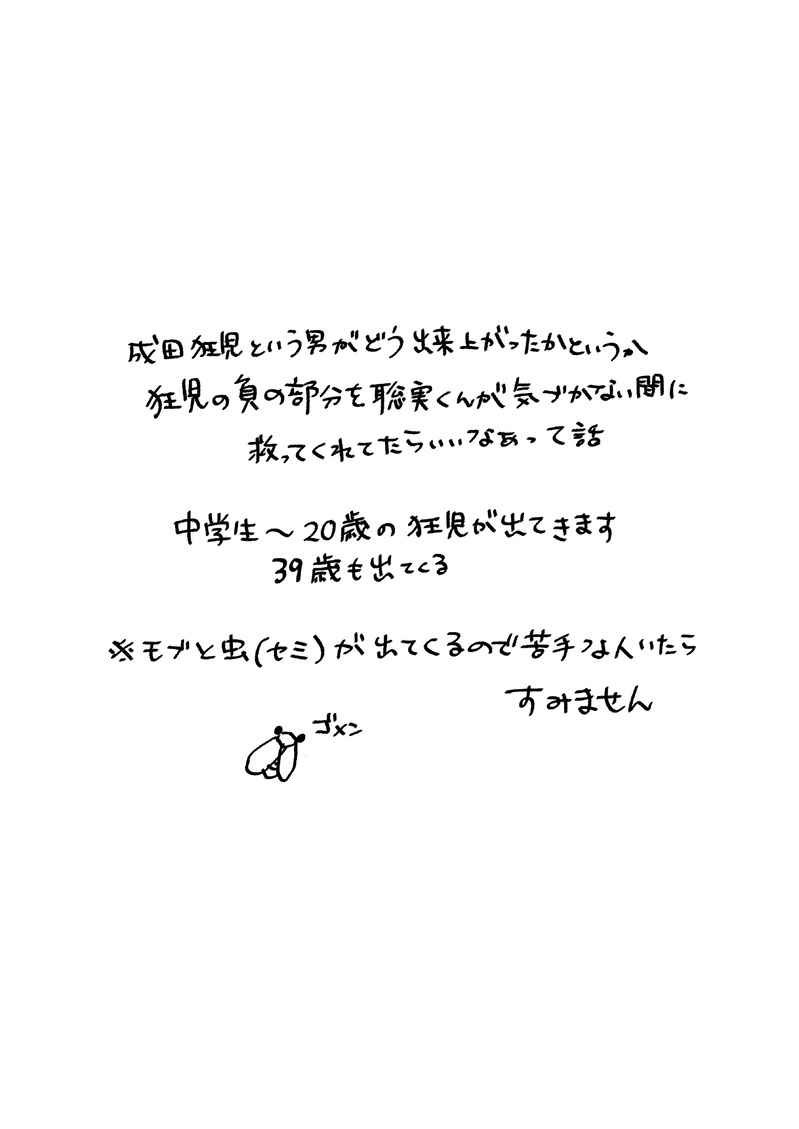 成田狂児という男がどう出来上がったかというか
狂児の負の部分を聡実くんが気づかない間に
救ってくれてたらいいなぁって話
中学生〜20歳の狂児が出てきます
39歳も出てくる
※モブと虫(セミ)が出てくるので苦手な人いたら
すみません
ゴメン